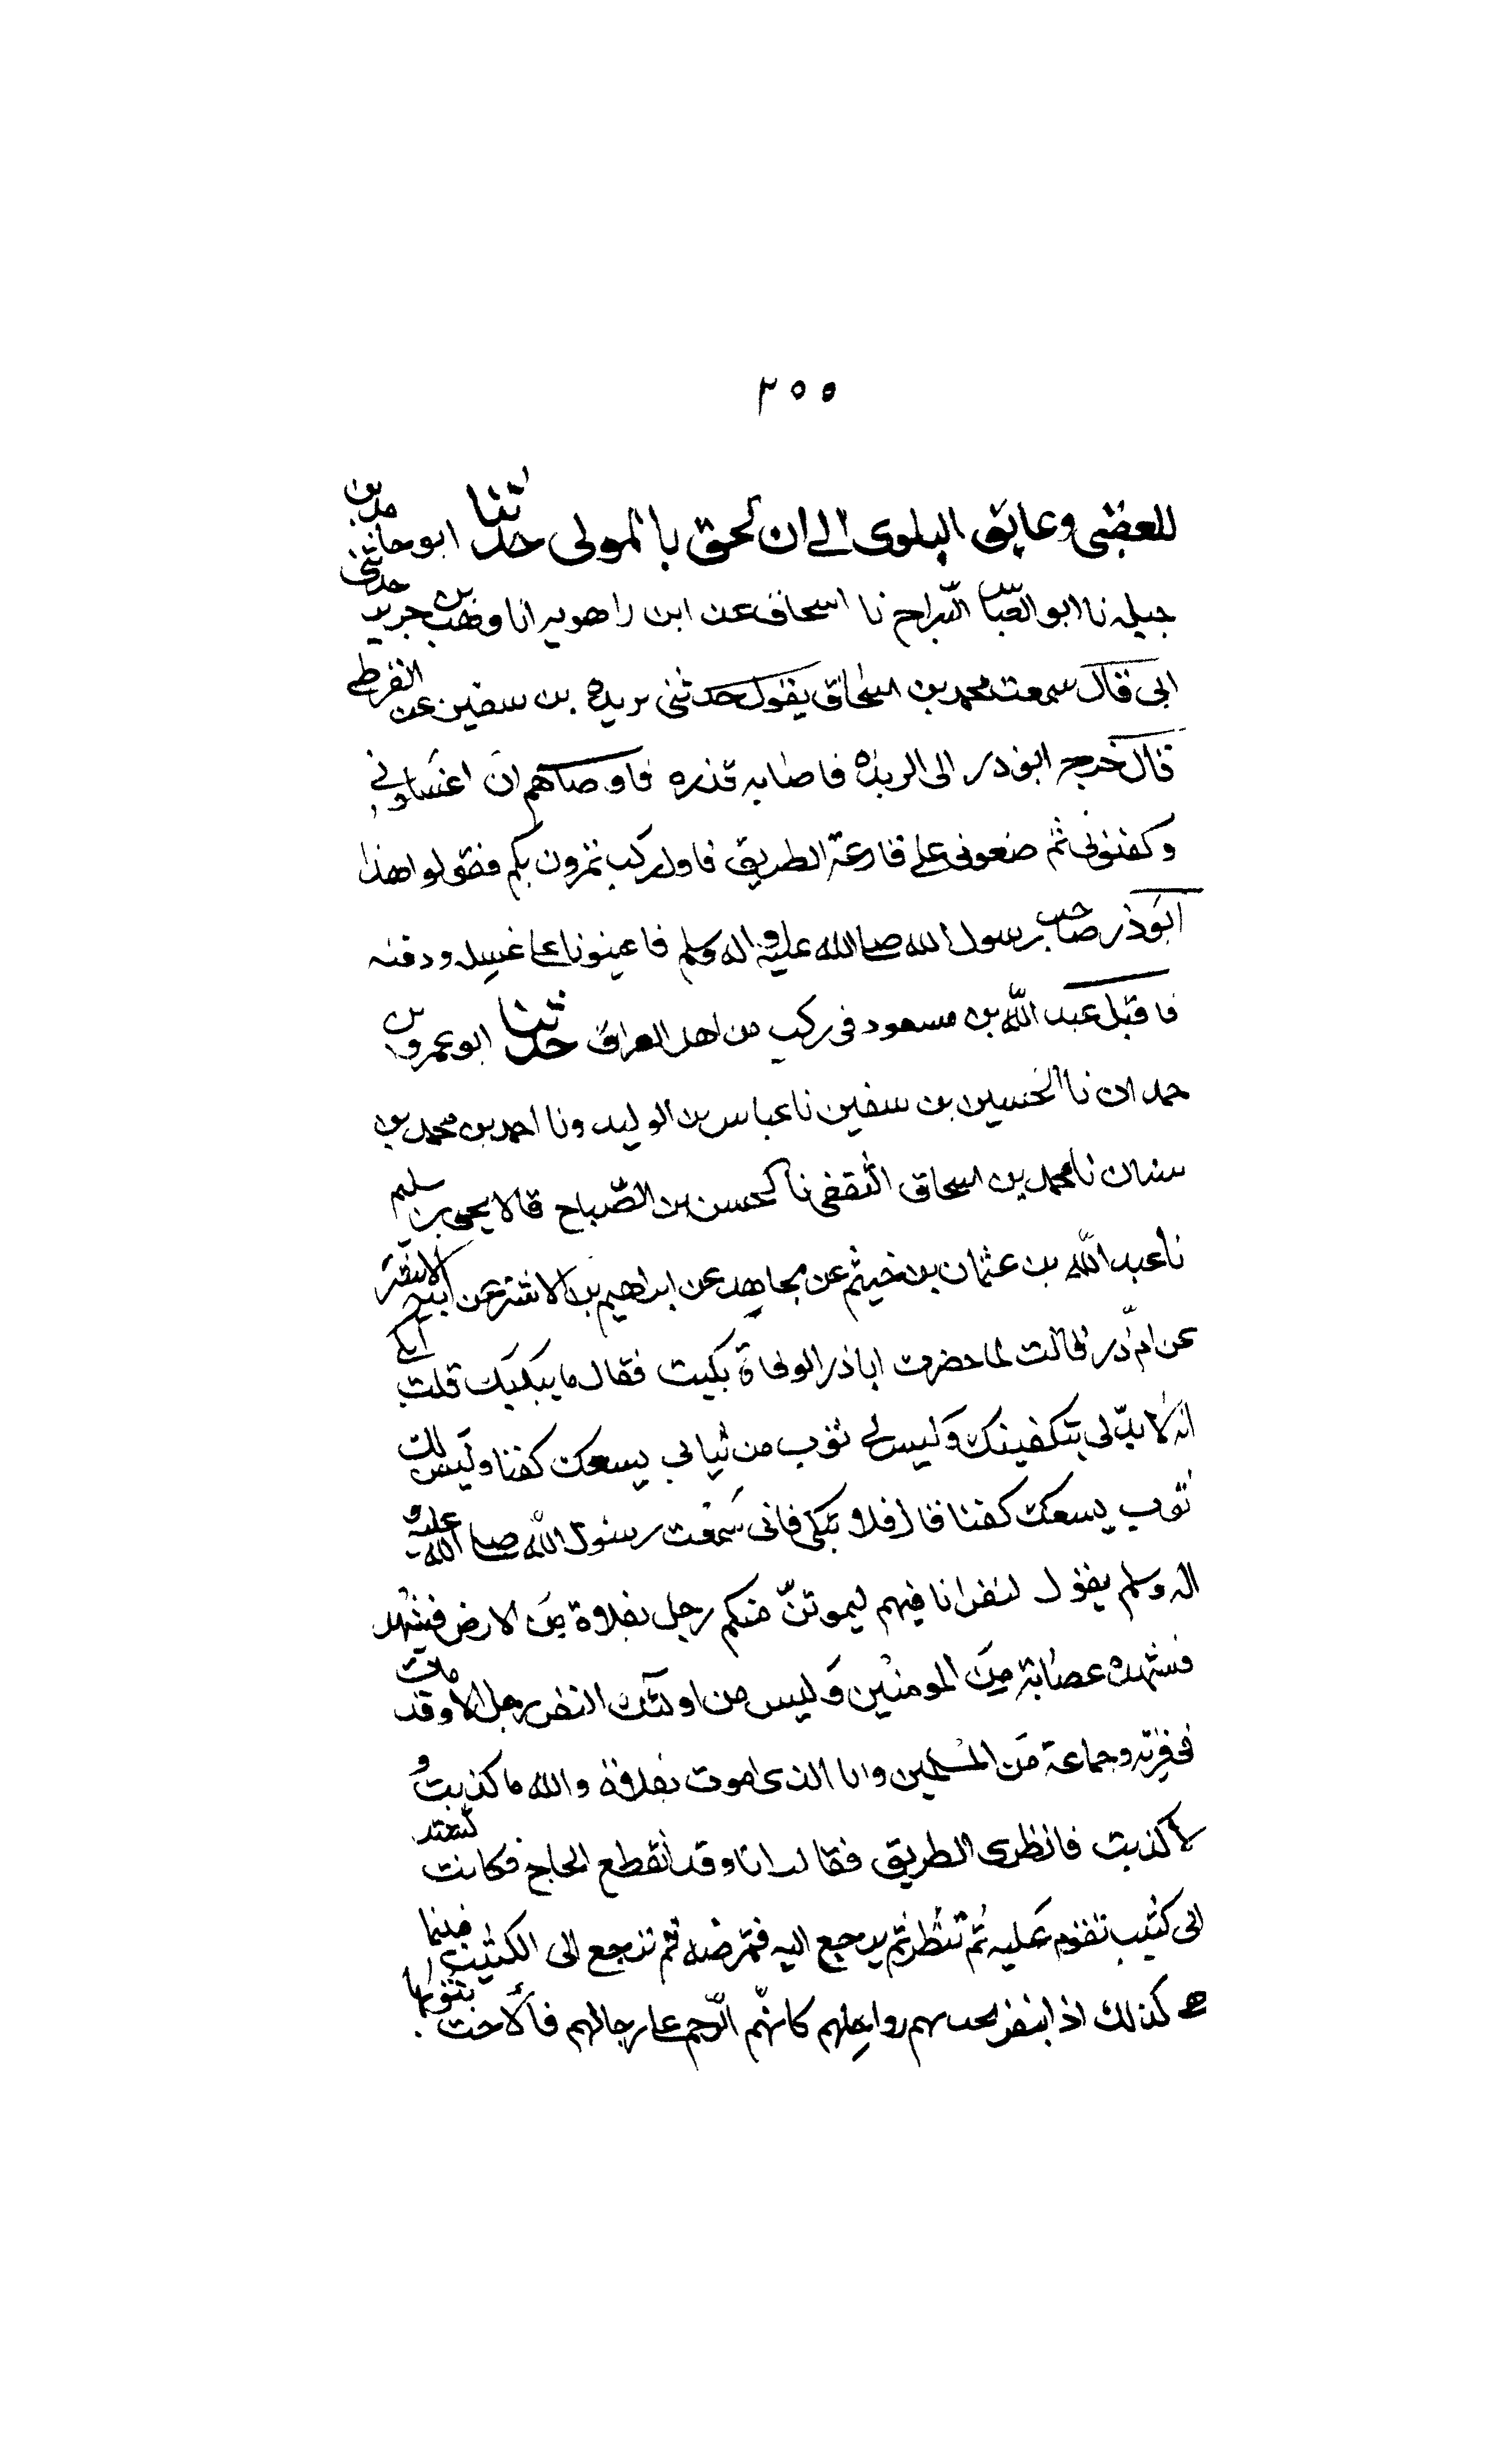 ٢٥٥
للعقبى وعايق البلوى الى ان لحق بالمولى حدثنا ابو حامد بن
جبله نا ابو العباس السراج نا اسحاق عن ابن راهويه انا وهب بن جرير حدثنى
ابى قال سمعت محمد بن اسحاق يقول حدثنى بريده بن سفين عن القرظى
قال خرج ابوذر الى الربذه فاصابه قدره فاوصاهم ان اغسلونى
وكفنونى ثم ضعونى على قارعة الطريق فاول ركب تمرون بكم فقولوا هذا
ابوذر صاحب رسول الله صلى الله عليه واله وسلم فاعينونا على غسله ودفنه
فاقبل عبد الله بن مسعود فى ركب من اهل العراق حدثنا ابو عمرو بن
حمدان نا الحسين بن سفين نا عباس بن الوليد ونا احمد بن محمد بن
سنان نا محمد بن اسحاق الثقفى نا الحسن بن الصباح قالا يحيى بن سليم
نا عبد الله بن عثمان بن خيثم عن مجاهد عن ابراهيم بن الاشتر عن ابيه الاشتر
عن ام ذر قالت لما حضرت اباذر الوفاة بكيت فقال ما يبكيك قلت ابكى
انه لا بد لى بتكفينك وليس لى ثوب من ثيابى يسعك كفنا وليس لك
ثوب يسعك كفنا قال فلا تبكى فانى سمعت رسول الله صلى الله عليه و
اله وسلم يقول لنفر انا فيهم ليموتن منكم رجل بفلاوة من الارض فيشهد
فشهده عصابة من المومنين وليس من اولئك النفر رجل الا وقد مات
فى قرية وجماعة من المسلمين وانا الذى اموت بفلاوة والله ما كذبت و
لا كذبت فانظرى الطريق فقالت انا وقد انقطع الحاج فكانت تشتد
الى كثيب تقوم عليه ثم تنظر ثم يرجع اليه فتمرضه ثم ترجع الى الكثيب فبينما
هى كذلك اذا بنفر رواحلهم كانهم الرخم على رحالهم فألاحت بثوبها